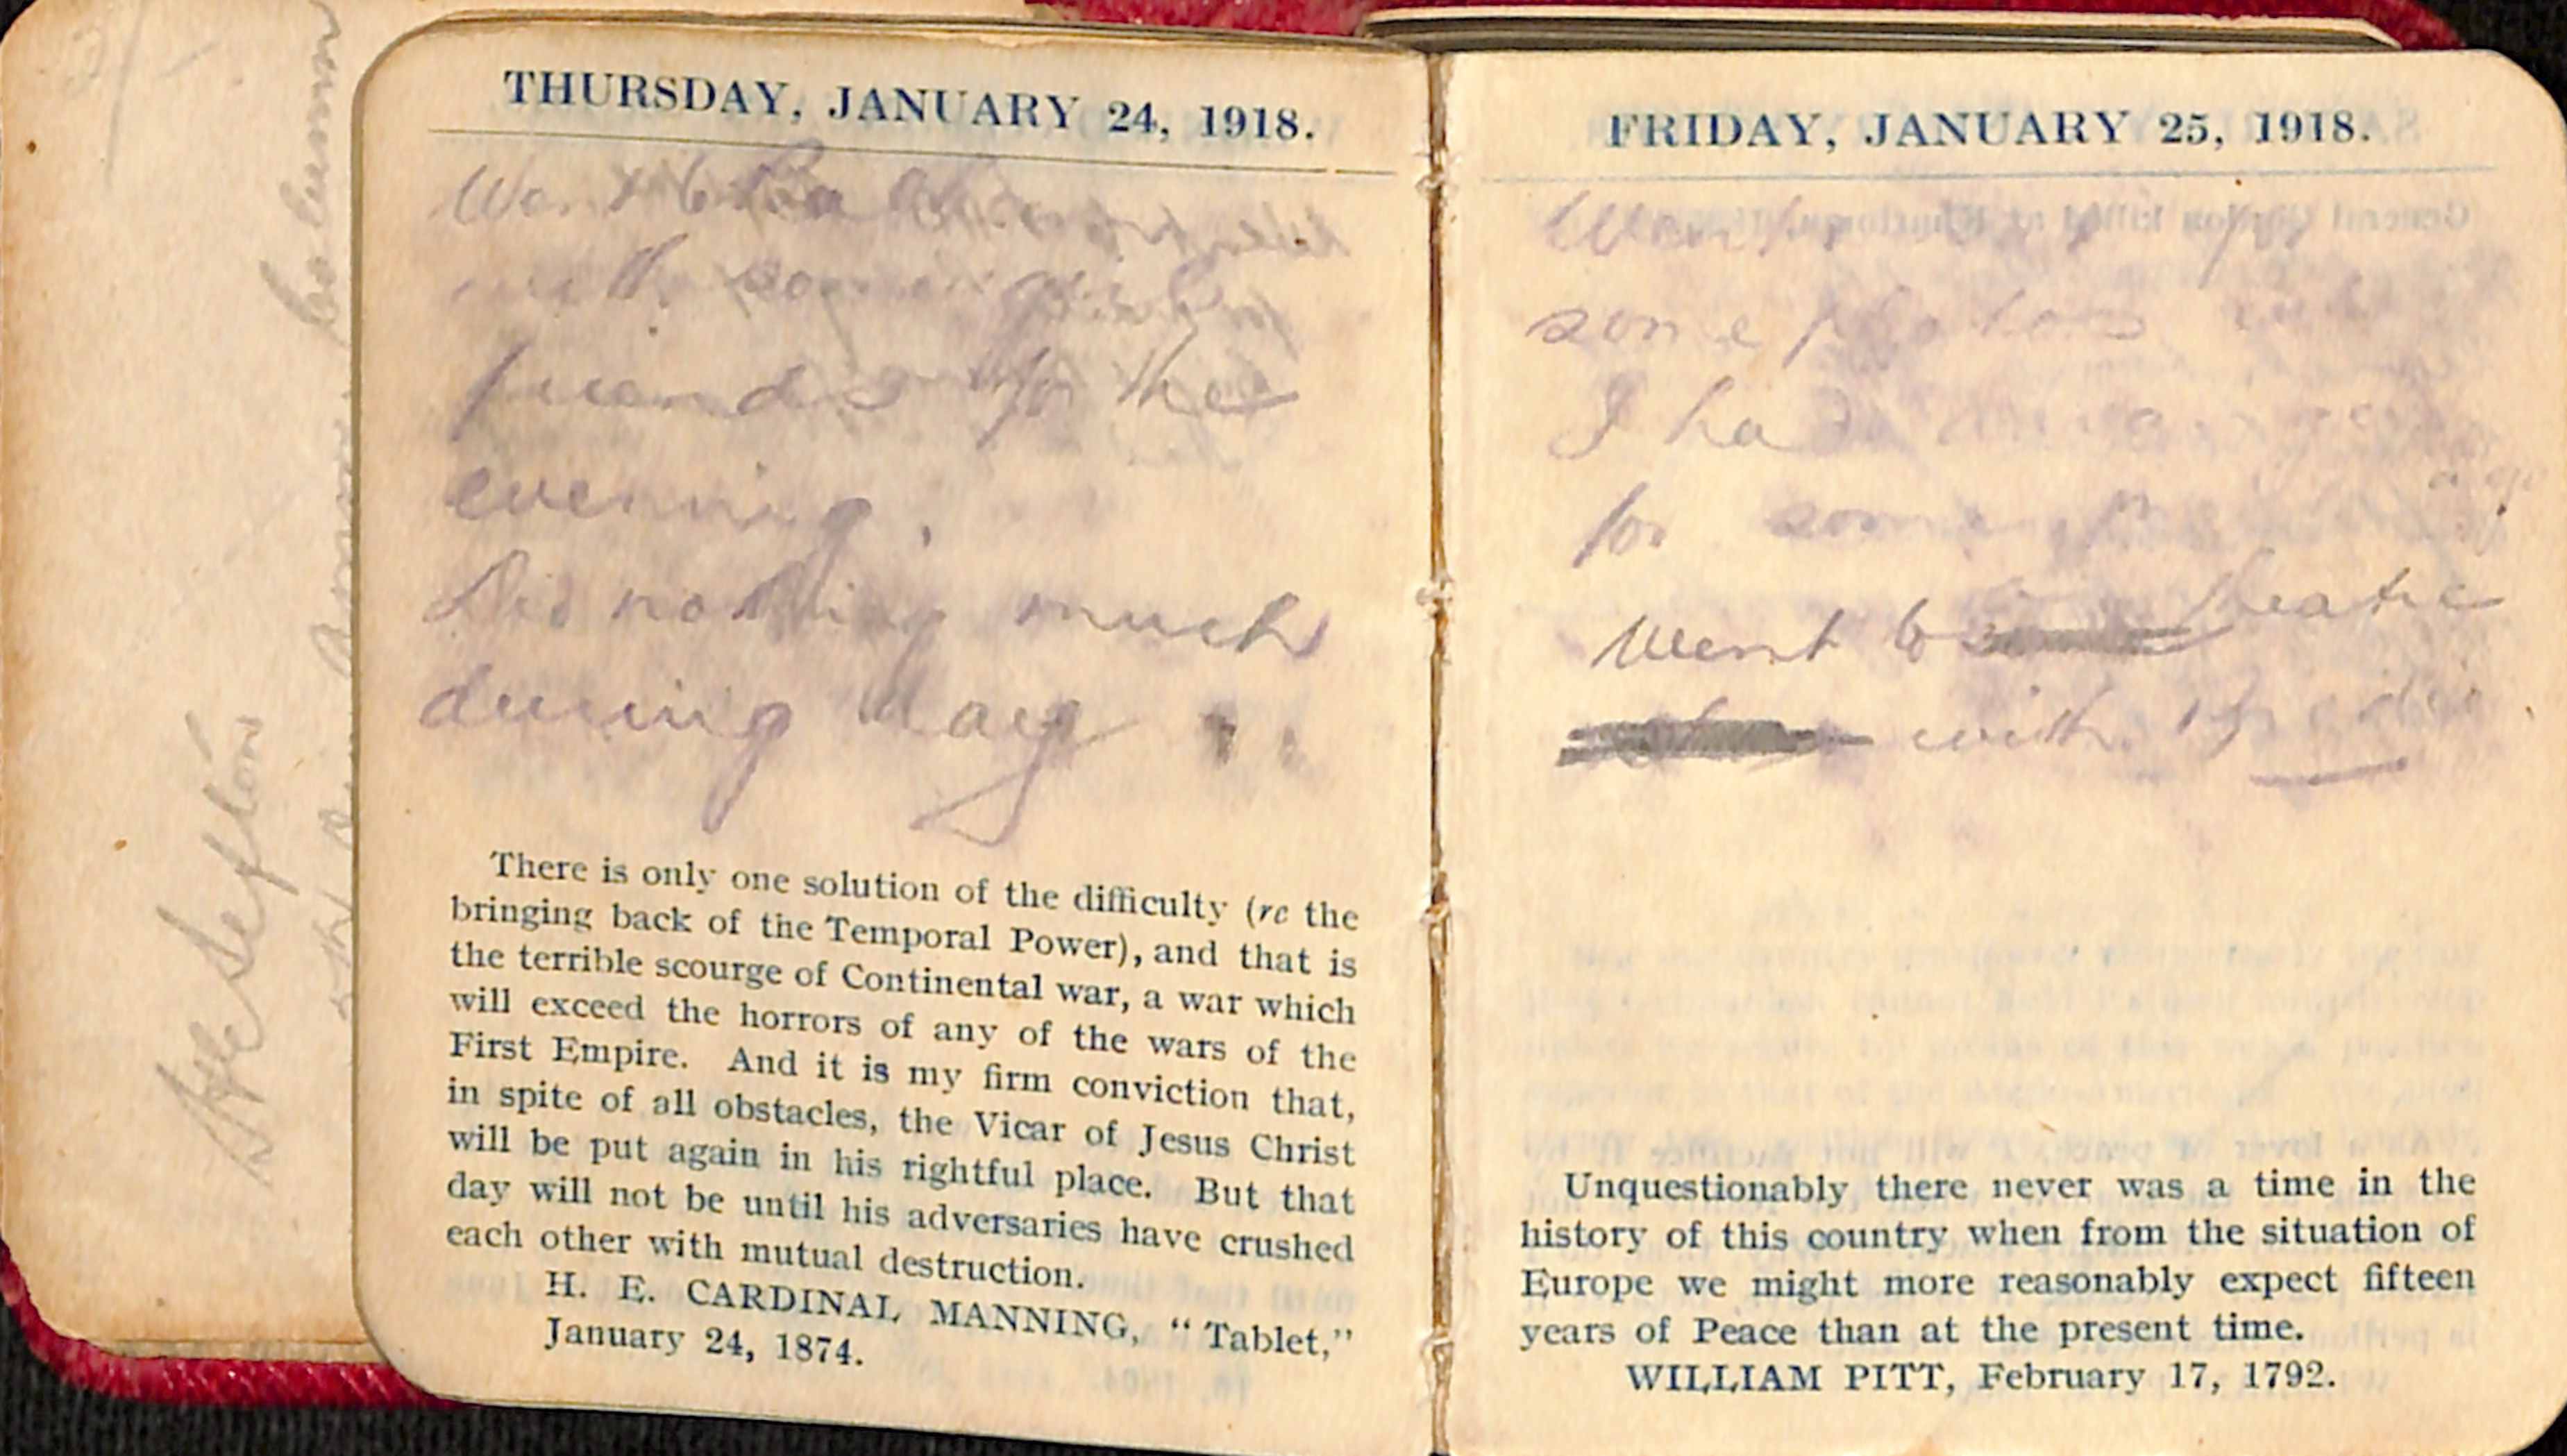 THURSDAY, JANUARY 24, 1918.
Went to a
with some girl
friends for the
evening.
Did nothing much
during day
There is only one solution of the difficulty (re the
bringing back of the Temporal Power), and that is
the terrible scourge of Continental war, a war which
will exceed the horrors of any of the wars of the
First Empire. And it is my firm conviction that,
in spite of all obstacles, the Vicar of Jesus Christ
will be put again in his rightful place. But that
day will not be until his adversaries have crushed
each other with mutual destruction.
H. E. CARDINAL MANNING, “Tablet,”
January 24, 1874.
FRIDAY, JANUARY 25, 1918.
Went for
some photos
I had
for some
Went to theatre
with
Unquestionably there never was a time in the
history of this country when from the situation of
Europe we might more reasonably expect fifteen
years of Peace than at the present time.
WILLIAM PITT, February 17, 1792.
Sefton